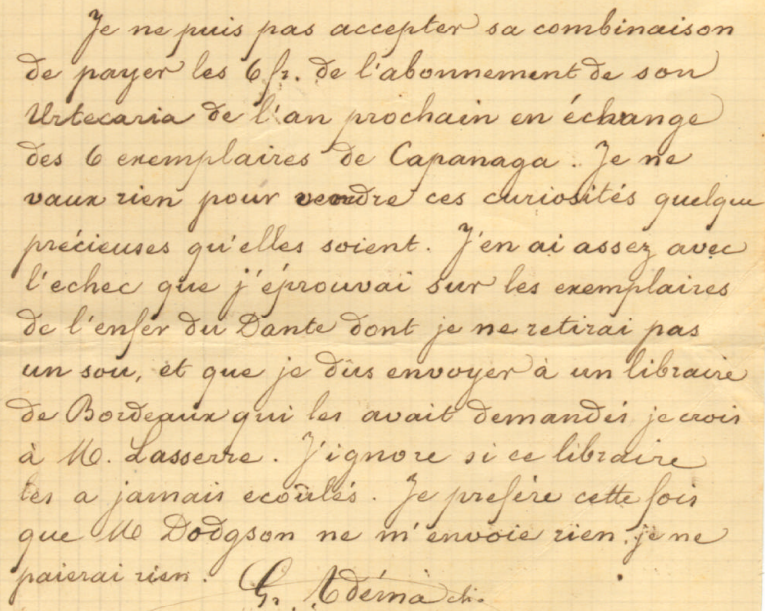 Je ne puis pas accepter sa combinaison
de payer les 6 fr. de l'abonnement de son
Urtecaria de l'an prochain en échange
des 6 exemplaires de Capanaga. Je ne
vaux rien pour vendre ces curiosités quelque
précieuses qu'elles soient. J'en ai assez avec
l'echec que j'éprouvai sur les exemplaires
de l'enfer du Dante dont je ne retirai pas
un sou, et que je dûs envoyer à un libraire
de Bordeaux qui les avait demandés je crois
à M. Lasserre. J'ignore si ce libraire
les a jamais ecoûlés. Je prefère cette fois
que M Dodgson ne m'envoie rien, je ne
paierai rien. G. Adéma ch.